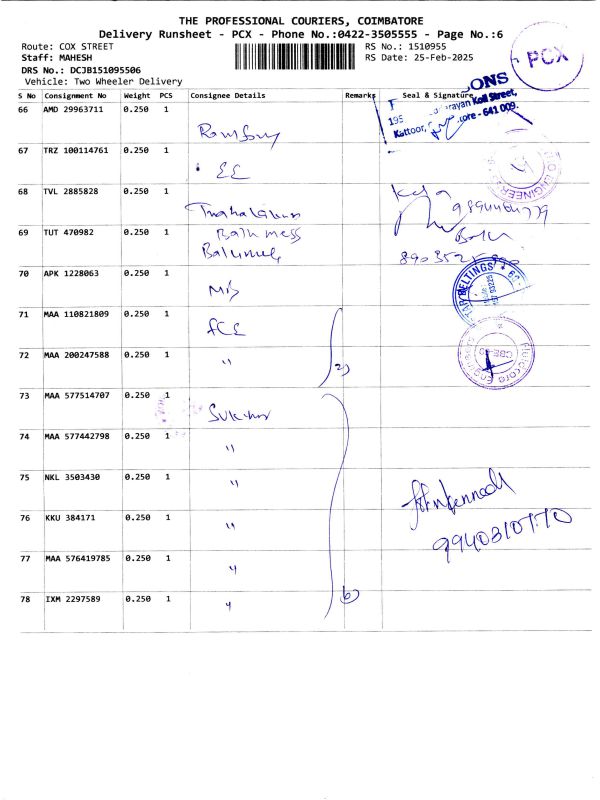 THE PROFESSIONAL COURIERS, COIMBATORE
Delivery Runsheet - PCX - Phone No.:0422-3505555 - Page No.:6
Route: COX STREET
RS No.: 1510955
Staff: MAHESH
RS Date: 25-Feb-2025
DRS No.: DCJB151095506
Vehicle: Two Wheeler Delivery
PCX
S No Consignment No Weight PCS Consignee Details Remarks Seal & Signature
66 AMD 29963711 0.250 1
ONS
Koil Street,
Kattoor, - 641 009.
67 TRZ 100114761 0.250 1 EE
68 TVL 2885828 0.250 1
69 TUT 470982 0.250 1 Balu mess
70 APK 1228063 0.250 1 M/s
BELTINGS
71 MAA 110821809 0.250 1 FCE
72 MAA 200247588 0.250 1 " 2)
73 MAA 577514707 0.250 1
74 MAA 577442798 0.250 1 "
75 NKL 3503430 0.250 1 "
76 KKU 384171 0.250 1 "
9940310770
77 MAA 576419785 0.250 1 "
78 IXM 2297589 0.250 1 " 6)